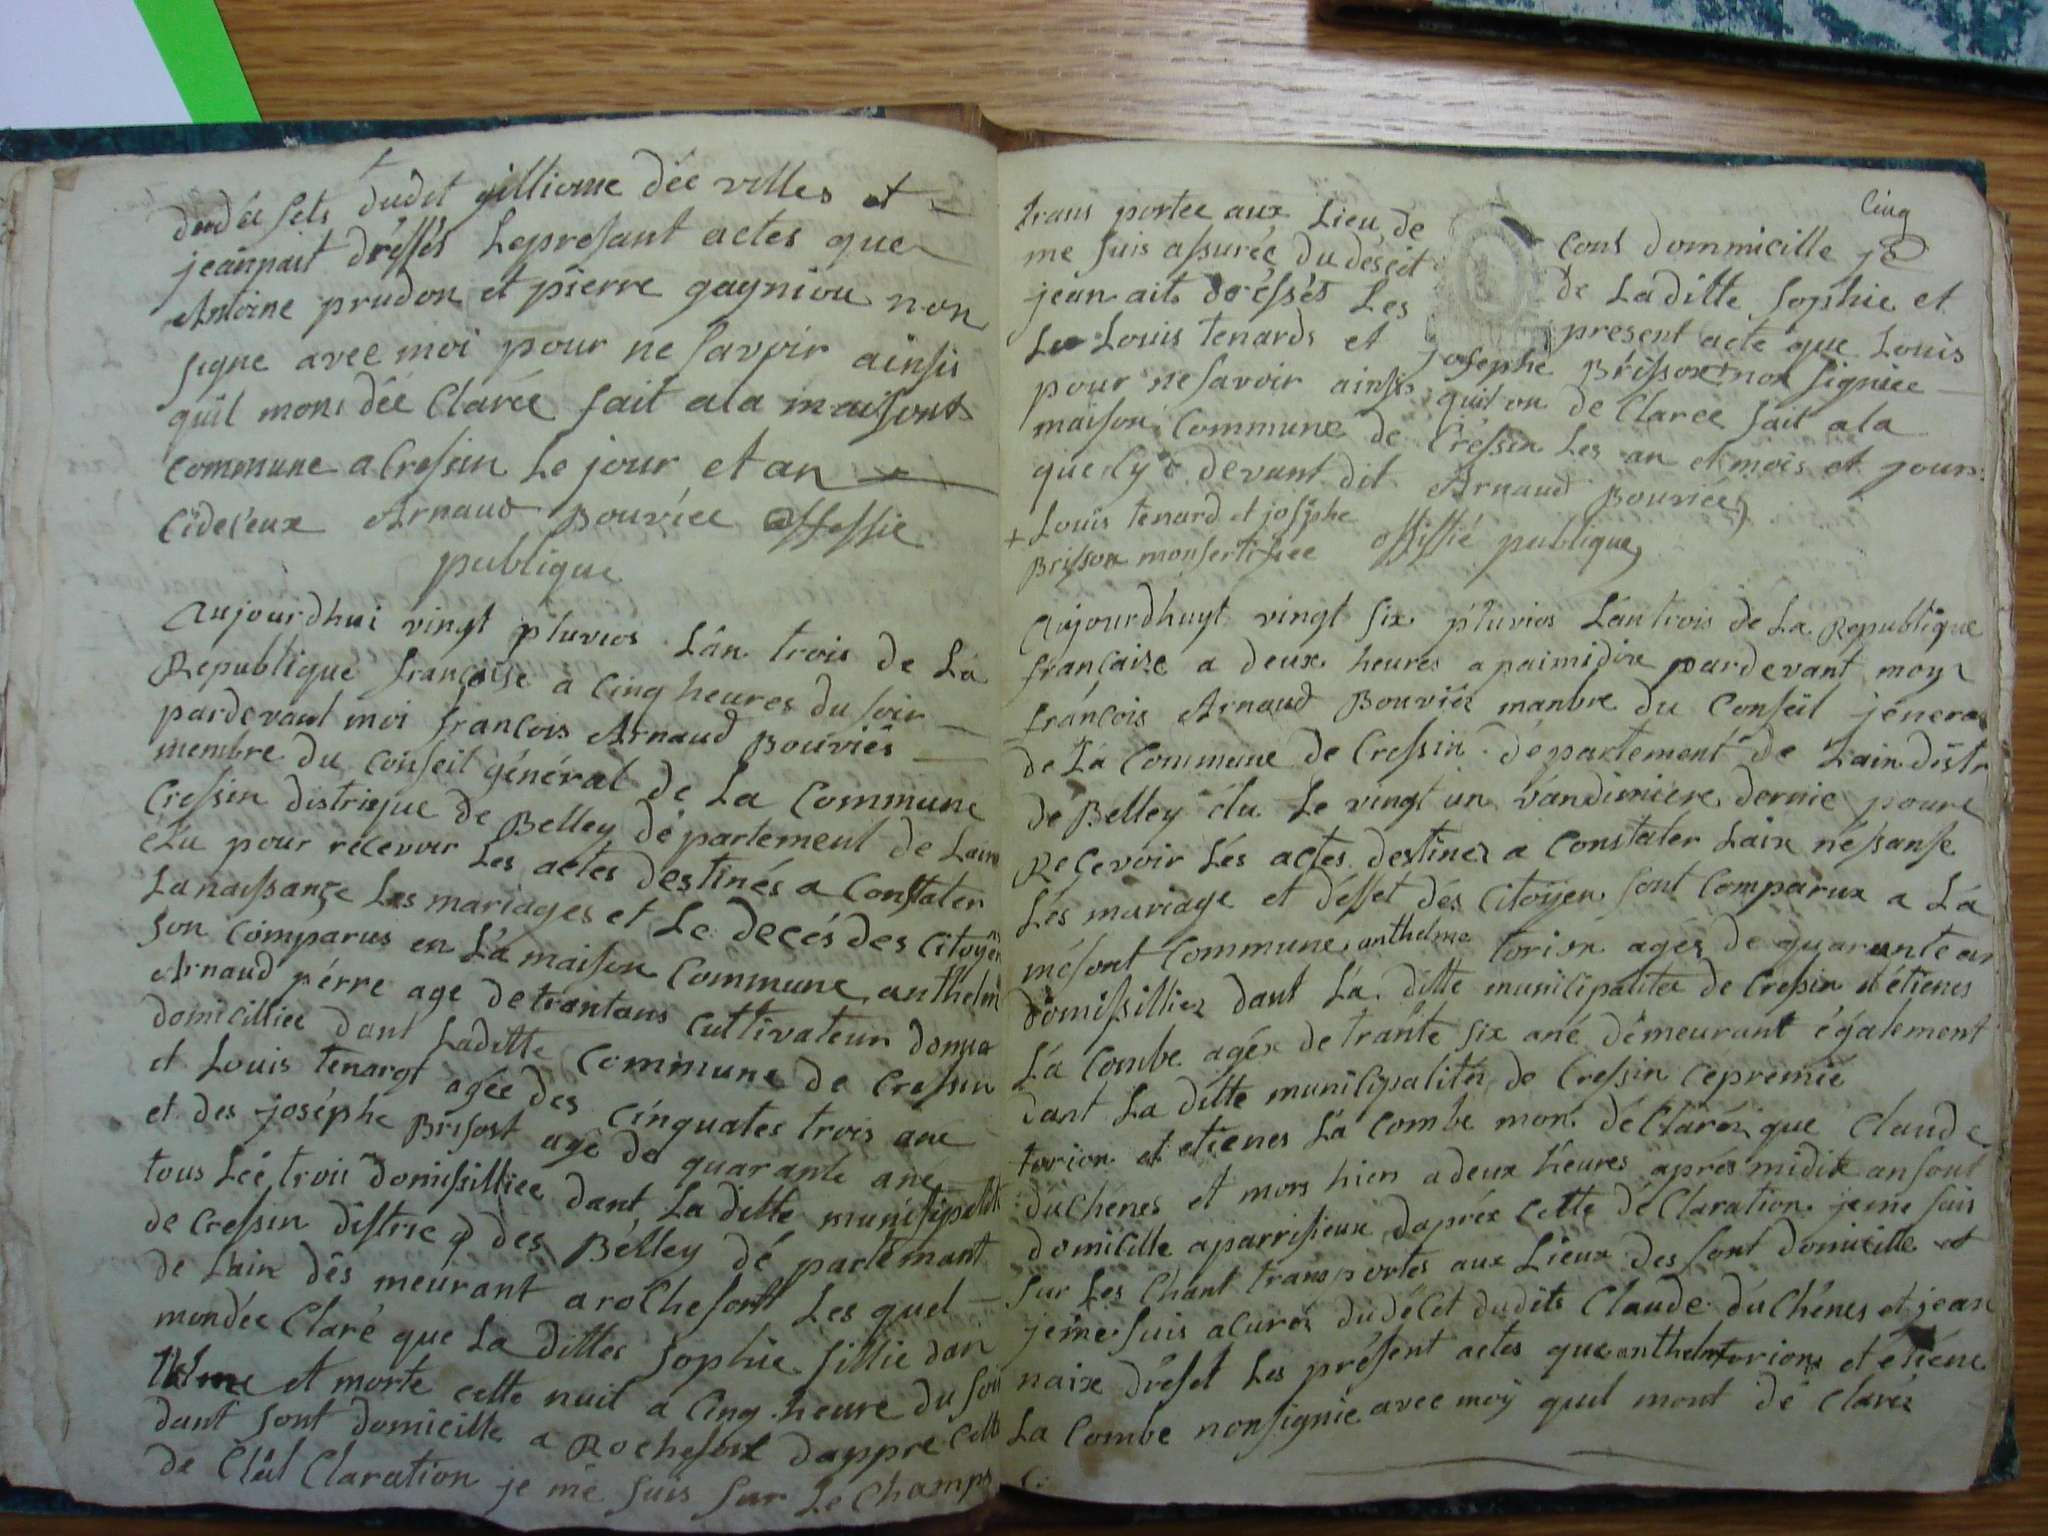 dudésets dudit gillione dée villes et
jeanpait dréssés Lepresant actes que
Antoine prudon et pierre gagniou non
signe avec moi pour ne savoir ainsis
quil mons dée Clarée fait ala maisont
commune a Cressin Le jour et an
Cideseux Arnaud Bouviée offessie
publique
Aujourdhui vingt pluvios Lân trois de La
Republique françoise a Cinq heures du soir
pardevant moi françois Arnaud Bouviés
membre du Conseil général de La Commune
Cressin distrique de Belley département de Lain
élu pour recevoir Les actes destinés a Constater
La naissançe Les mariages et Le decés des Citoyen
son Comparus en La maison Commune anthelme
Arnaud pérre age detrantans cultivateur
domicilliee dant Laditte Commune de Cressin
et Louis tenard agée des cinquates trois ane
et des joséphe Brisost age de quarante ané
tous Léé trois domissilliee dant La ditte munisipalité
de Cressin distric q des Belley dé partemant
de Lain dés meurant aroChefort Les quel
mondée Claré que La dittes Sophie fillie dan
et morte cette nuit a Cinq heure du soir
dant sont domicille a Rochefort dappre Cette
de Clâl Claration je me suis sur Le Champs
Cinq
trans portee aux Lieu de sont dommicille je
me suis assurée du déséit de Laditte Sophie et
jean aits dréssés Les present acte que Louis
Louis tenards et josephe Brisson non signiee
pour ne savoir ainsis quil on de Claree fait ala
maison Commune de Cressin Les an et mois et jours
que Cy devant dit Arnaud Bouviée
+ Louis tenard et josphe
Brisson monsertifiee offissié publique
Aujourdhuyt vingt six pluvios Lantrois de La Republique
française a deux heures apaimidix pardevant moy
françois Arnaud Bouvier manbre du Conseil jéneral
de La Commune de Cressin département de Lain distr
de Belley élu Le vingt un vandimiere dernie poure
Recevoir Lés actes destinez a Constater Laix néssanse
Lés mariage et désset dés Citoÿen sont Comparux a La
mésont Commune anthelme torion agés de quarante an
domissilliez dant La ditte municipalitée de Cressin et étienes
La Combe agéz de trante six ané démeurant également
dant La ditte municipalitéz de Cressin Cepremié
torion et etienes La Combe mon déClaréz que Claude
duChénes et mors hier adeux heures aprés midix ansont
domicille aparrisieux dapréx Cette déClaration jeme suis
sur Les Chant transportes aux Lieux des sont domicille et
jeme suis acuréz dudécet dudits Claude duChénes et jean
naix dréset Les présent actes que anthelm torions et etiéne
La Combe nonsignie avec moÿ quil mont dé Claréz